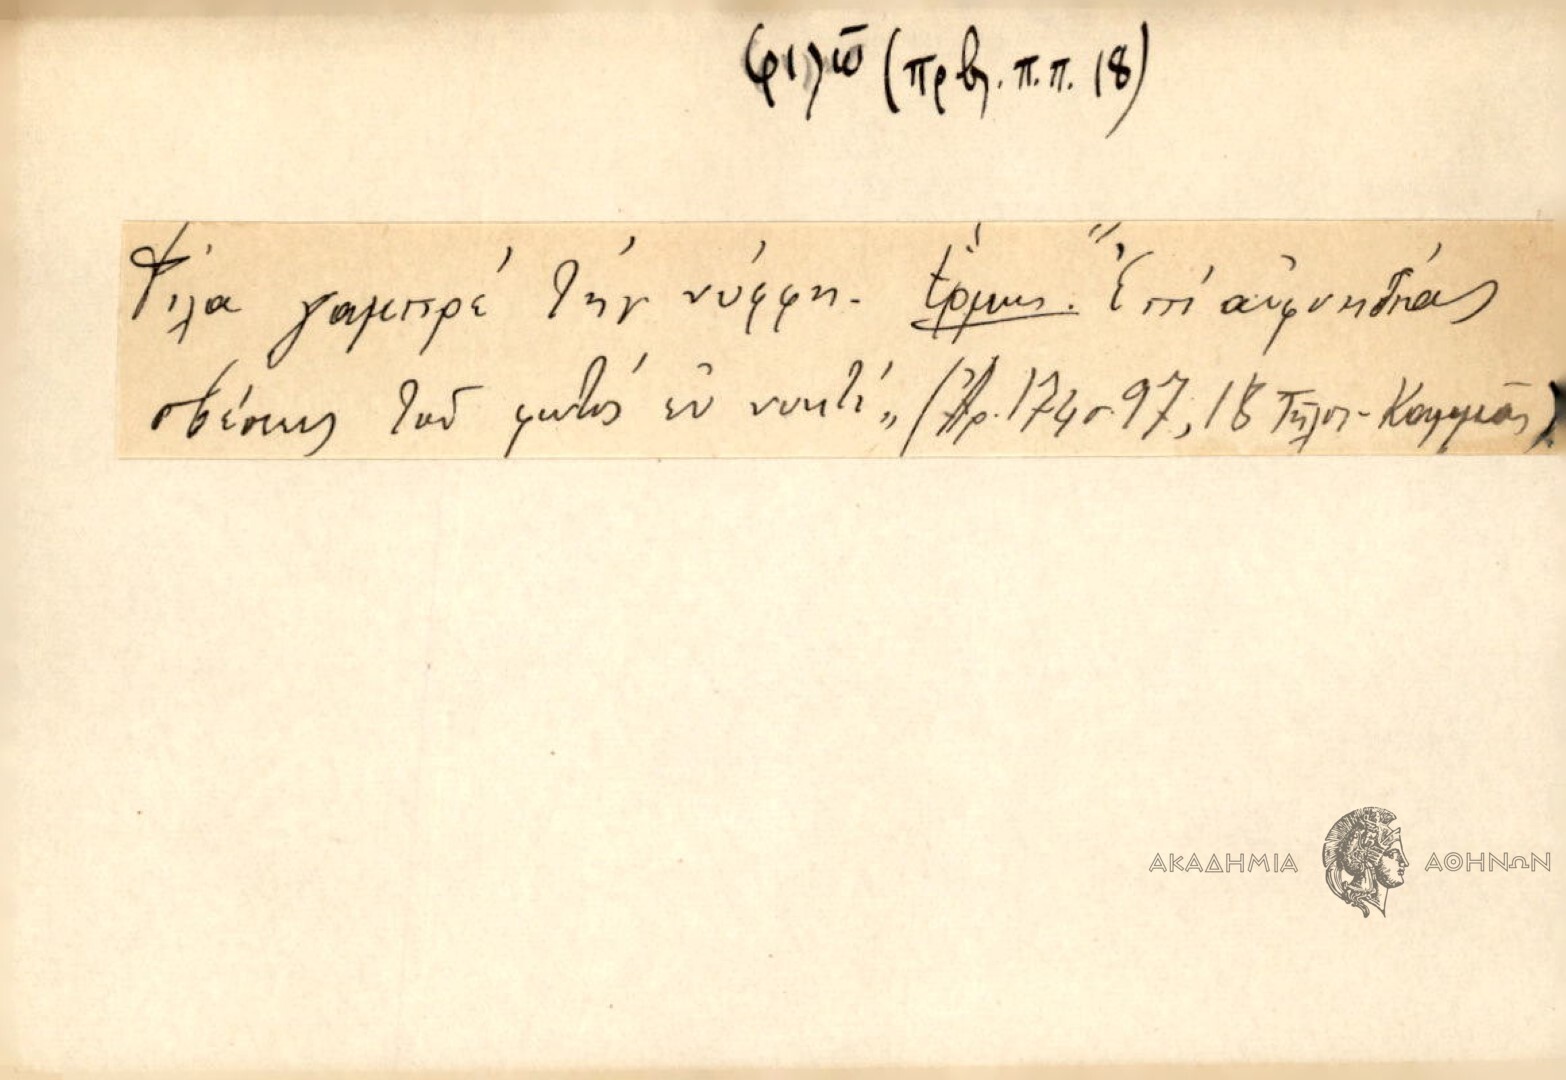 φιλῶ (πρβλ. π.π. 18)
Φίλα γαμπρέ τήν νύφφη. Ἑρμην. "Ἐπί αἰφνιδίας
σβέσεως τοῦ φωτός ἐν νυκτί„ (Ἀρ. 174 σ. 97, 18 Τῆλος -
ΑΚΑΔΗΜΙΑ ΑΘΗΝΩΝ